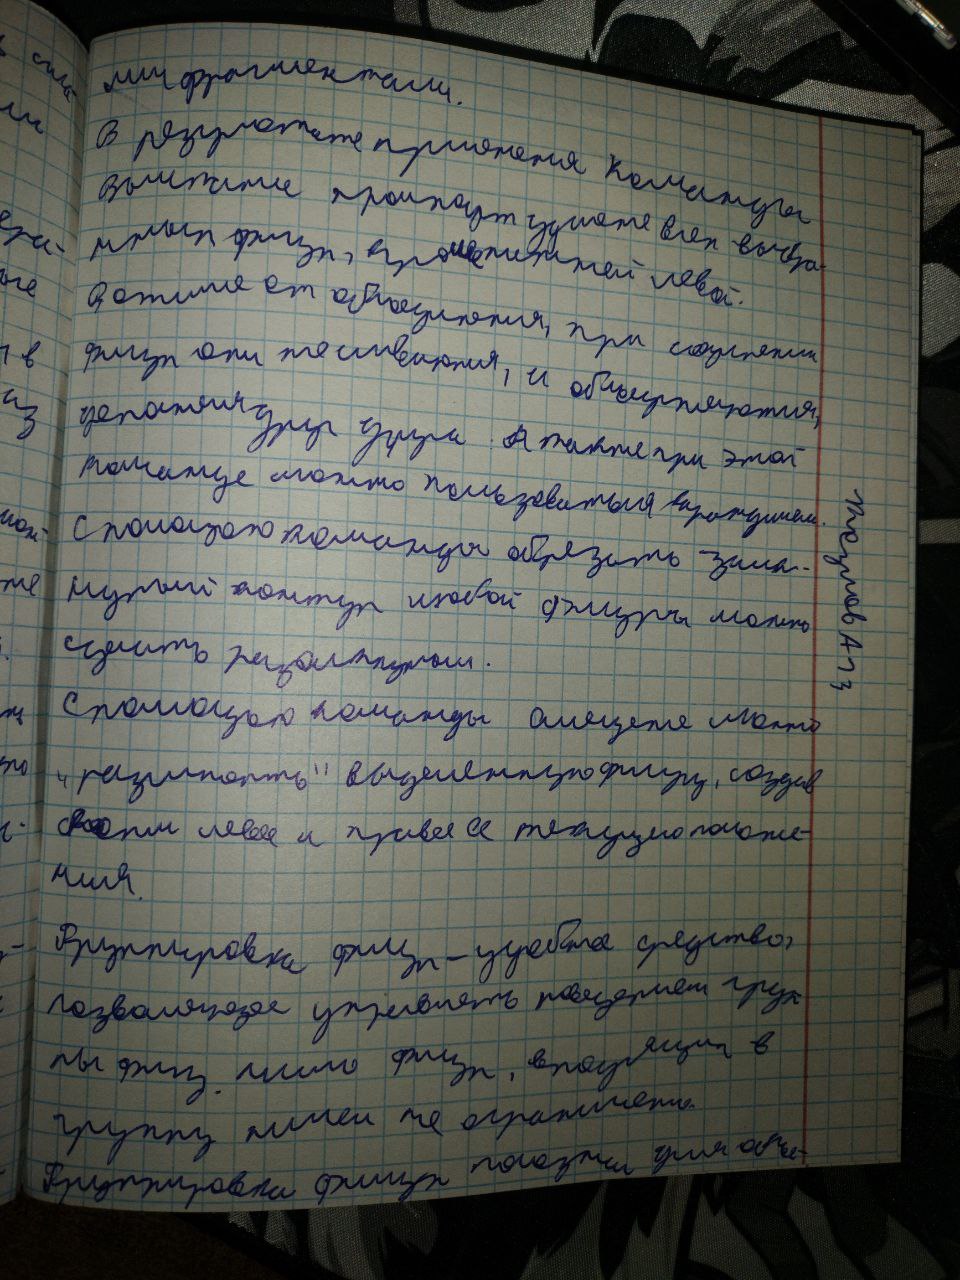 ми фрагментами.
В результате применения команды
Вычитание происходит удаление всех выбра-
нных фигур, кроме нижней левой.
В отличие от объединения, при соединении
фигур они не сливаются, и объединяются,
дополняя друг друга. А также при этой
команде можно пользоваться вырождением.
С помощью команды обрезать замк-
нутый контур любой фигуры можно
сделать разомкнутым.
С помощью команды смещение можно
"размножить" выделенную фигуру, создав
копии левее и правее её текущего положе-
ния.
Группировка фигур - удобное средство,
позволяющее управлять поведением груп-
пы фигур. Число фигур, входящих в
группу ничем не ограничено.
Группировка фигур полезна для объе-
А-13
сть
ми
ные
в
из
мож-
же